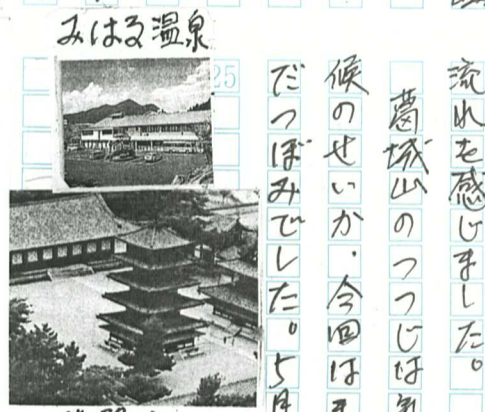 流れを感じました。
葛城山のつつじは
候のせいか、今回は
だつぼみでした。5月
みはる温泉
25